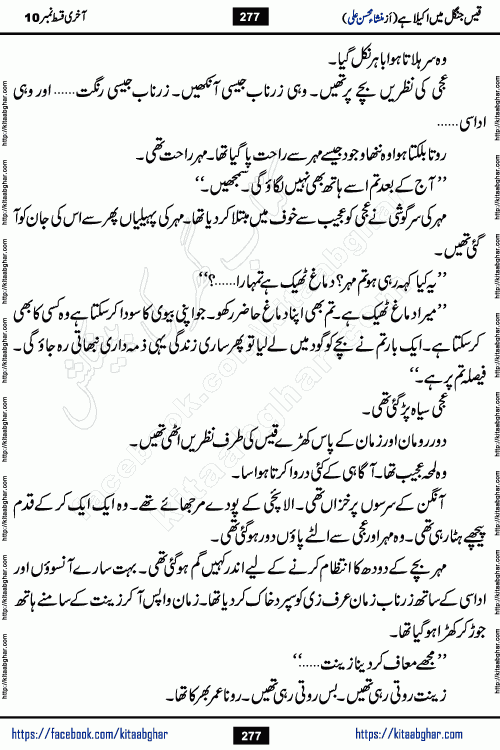 قیس جنگل میں اکیلا ہے (از منشاء محسن علی) 277 آخری قسط نمبر 10
وہ سر ہلاتا ہوا باہر نکل گیا۔
عجی کی نظریں بچے پر تھیں۔ وہی زرناب جیسی آنکھیں۔ زرناب جیسی رنگت...... اور وہی
اداسی......
روتا بلکتا ہوا وہ ننھا وجود جیسے مہر سے راحت پا گیا تھا۔ مہر راحت تھی۔
’’آج کے بعد تم اسے ہاتھ بھی نہیں لگاؤ گی۔ سمجھیں۔‘‘
مہر کی سرگوشی نے عجی کو عجیب سے خوف میں مبتلا کر دیا تھا۔ مہر کی پہیلیاں پھر سے اس کی جان کو آ
گئی تھیں۔
’’یہ کیا کہہ رہی ہو تم مہر؟ دماغ ٹھیک ہے تمہارا......؟‘‘
’’میرا دماغ ٹھیک ہے۔ تم بھی اپنا دماغ حاضر رکھو۔ جو اپنی بیوی کا سودا کر سکتا ہے وہ کسی کا بھی
کر سکتا ہے۔ ایک بار تم نے بچے کو گود میں لے لیا تو پھر ساری زندگی یہی ذمہ داری نبھاتی رہ جاؤ گی۔
فیصلہ تم پر ہے۔‘‘
عجی سیاہ پڑ گئی تھی۔
دور رومان اور زمان کے پاس کھڑے قیس کی طرف نظریں اٹھی تھیں۔
وہ لمحہ عجیب تھا۔ آگاہی کے کئی در وا کرتا ہوا سا۔
آنگن کے سرسوں پر خزاں تھی۔ الائچی کے پودے مرجھائے تھے۔ وہ ایک ایک کر کے قدم
پیچھے ہٹا رہی تھی۔ وہ مہر اور عجی سے الٹے پاؤں دور ہو گئی تھی۔
مہر بچے کے دودھ کا انتظام کرنے کے لیے اندر کہیں گم ہو گئی تھی۔ بہت سارے آنسوؤں اور
اداسی کے ساتھ زرناب زمان عرف زی کو سپرد خاک کر دیا تھا۔ زمان واپس آ کر زینت کے سامنے ہاتھ
جوڑ کر کھڑا ہو گیا تھا۔
’’مجھے معاف کر دینا زینت......‘‘
زینت روتی رہی تھیں۔ بس روتی رہی تھیں۔ رونا عمر بھر کا تھا۔
https://facebook.com/kitaabghar 277 https://kitaabghar.com